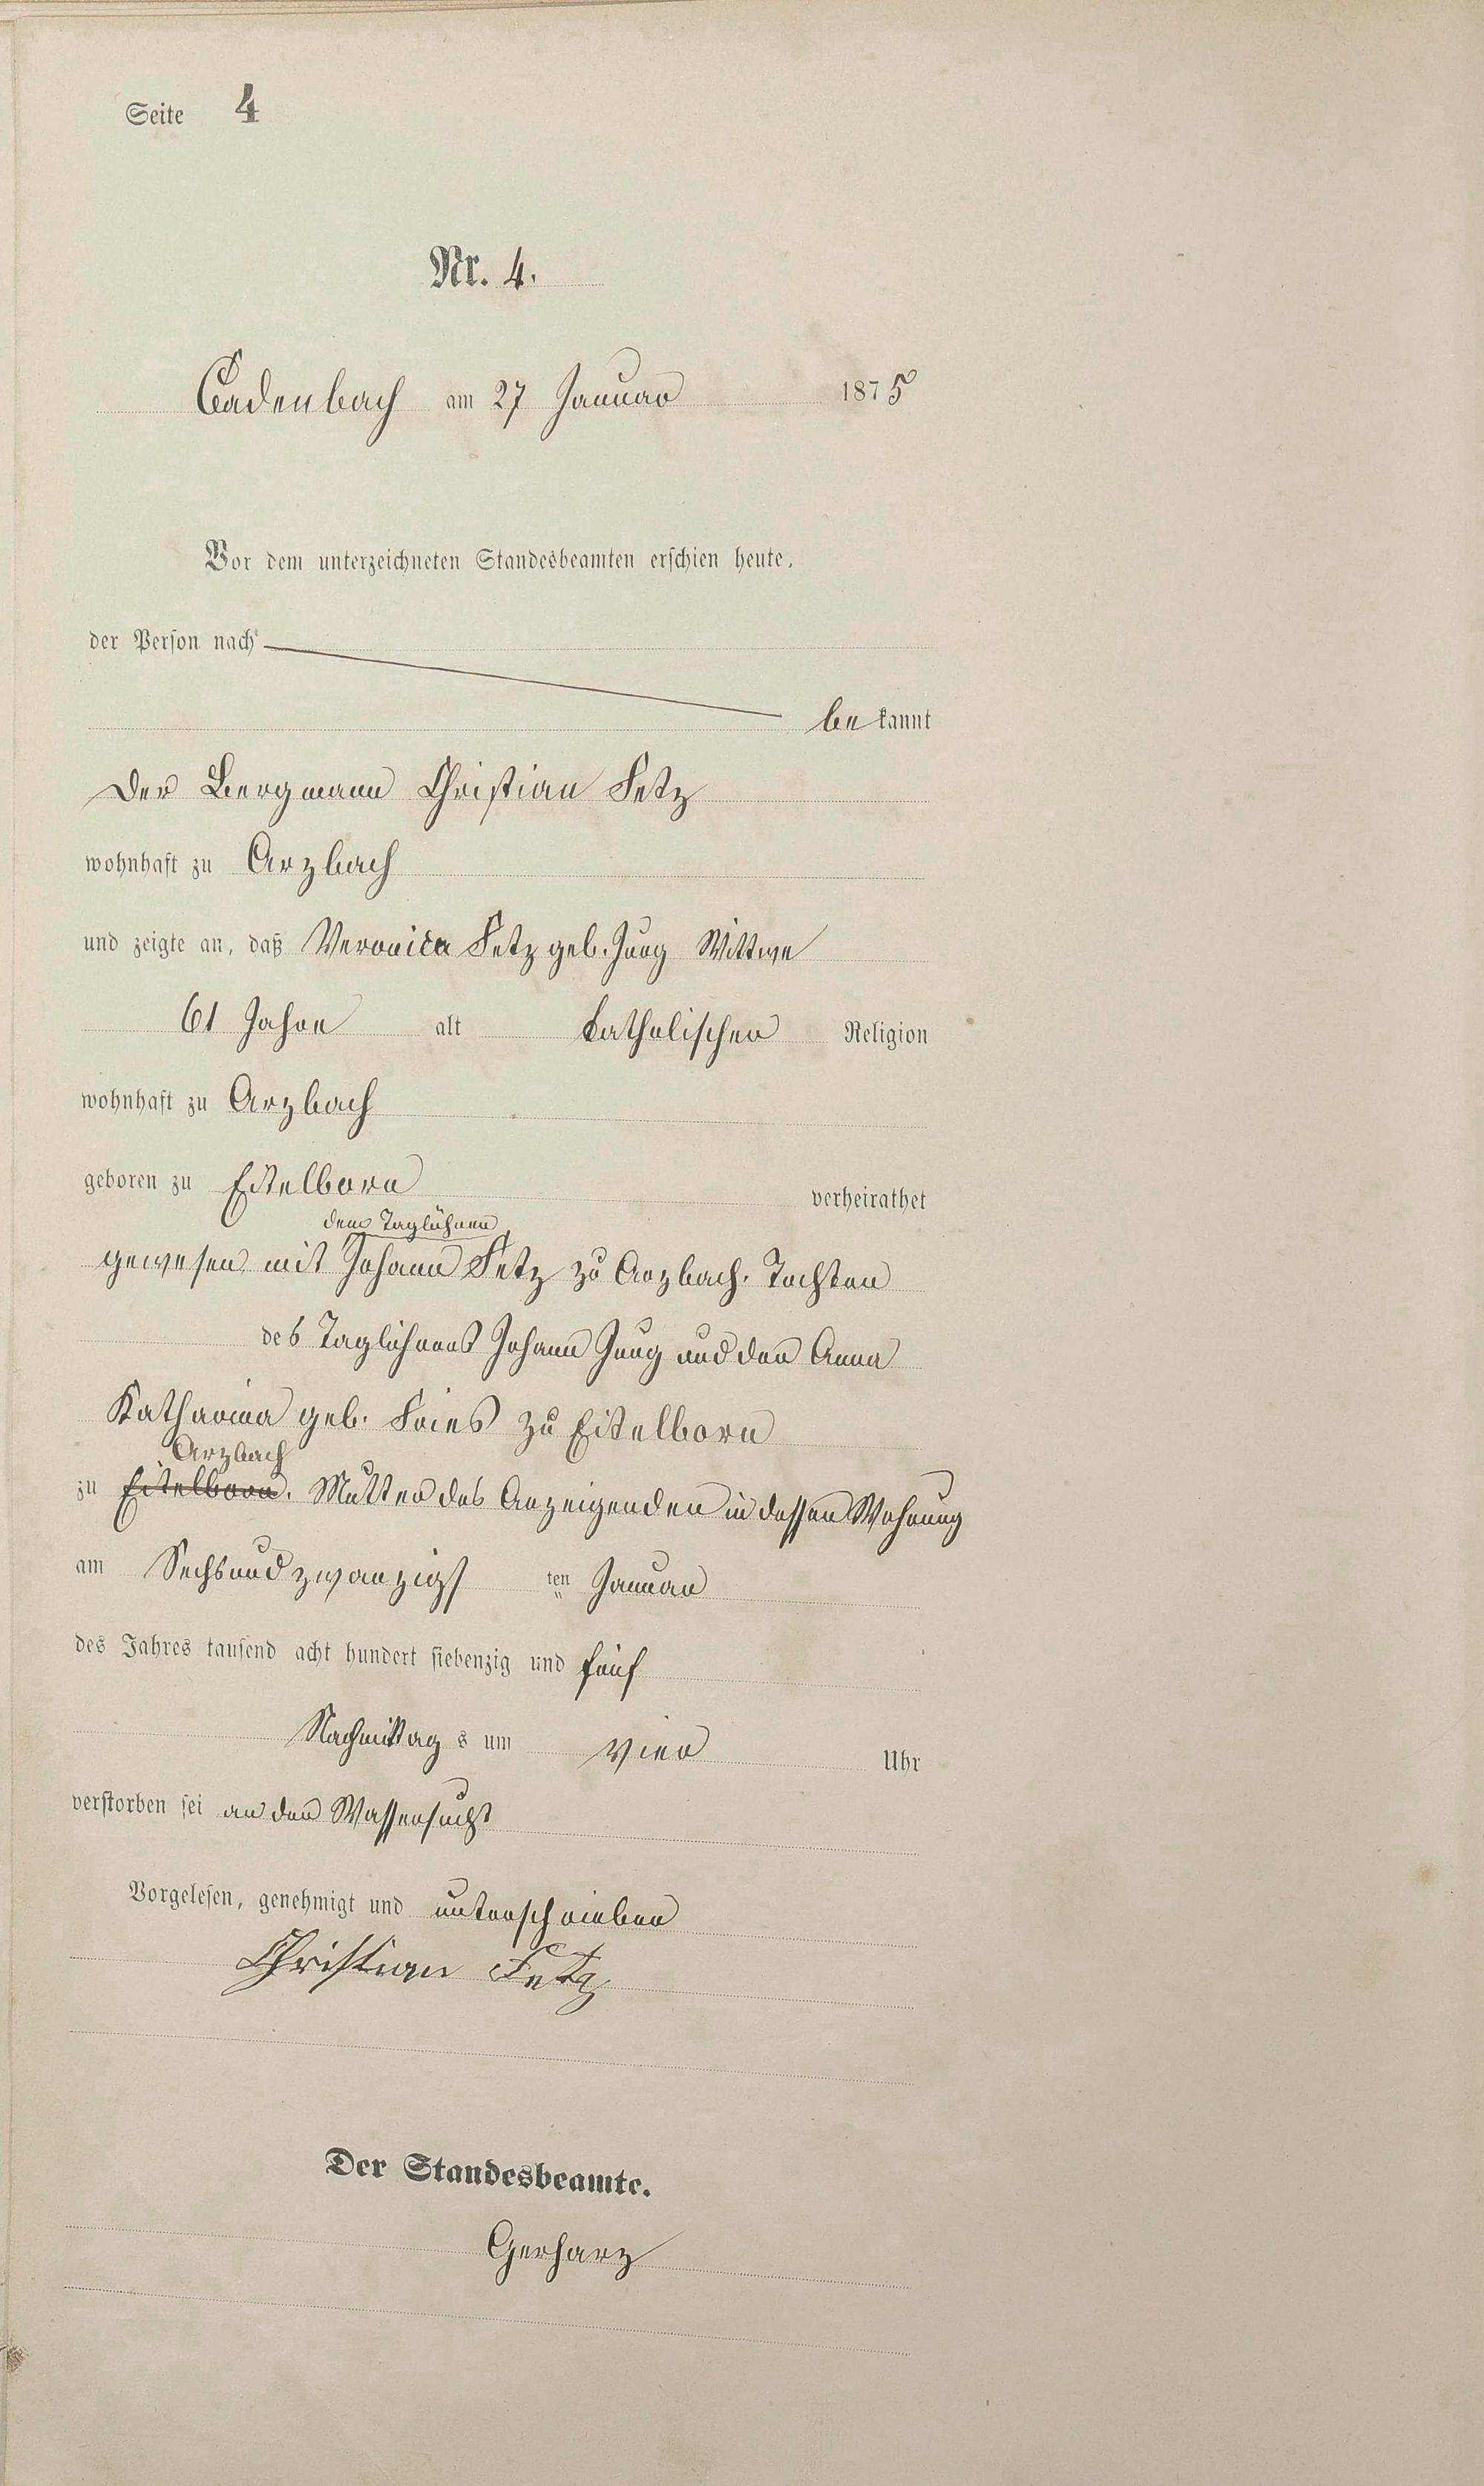 Seite 4
Nr. 4.
Cadenbach am 27 Januar 1875
Vor dem unterzeichneten Standesbeamten erschien heute,
der Person nach
bekannt
Der Bergmann Christian Fetz
wohnhaft zu Arzbach
und zeigte an, daß Veronica Fetz geb. Jung Wittwe
61 Jahre alt katholischer Religion
wohnhaft zu Arzbach
geboren zu Eitelborn verheirathet
dem Taglöhner
gewesen mit Johann Fetz zu Arzbach. Tochter
des Taglöhners Johann Jung und der Anna
Katharina geb. Fries zu Eitelborn
Arzbach
zu Eitelborn. Mutter des Anzeigenden in dessen Wohnung
am Sechsundzwanzigsten Januar
des Jahres tausend acht hundert siebenzig und fünf
Nachmittags um vier Uhr
verstorben sei an der Wassersucht
Vorgelesen, genehmigt und unterschrieben
Christian Fetz
Der Standesbeamte.
Gerharz